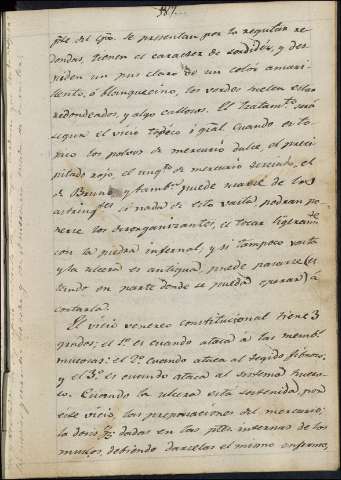 387...
pte del cpo. Se presentan por lo regular re-
dondas, tienen el caracter de sordidez, y des-
piden un pus claro de un color amari-
llento, ó blanquecino, los vordes suelen estar
redondeados, y algo callosos. El tratamto será
segun el vicio topico ó gral. Cuando es to-
pico los polvos de mercurio dulce, el preci-
pitado rojo, el ungto de mercurio terciado, el
de Bruno y tambn puede usarse de los
astringtes si nada de esto vasta podran po-
nerse los desorganizantes, el tocar ligeramte
con la piedra infernal, y si tampoco vasta
y la ulcera es antigua puede pasarse (es
tando en parte donde se pueda operar) á
cortarla.
El vicio venereo constitucional tiene 3
grados; el 1o es cuando ataca á las memb.
mucosas; el 2o cuando ataca al tegido fibroso,
y el 3o es cuando ataca al sistema hueso-
so. Cuando la ulcera está sostenida por
este vicio, las preparaciones del mercurio;
la dosis dadas en las ptes internas de los
muslos, debiendo darselas el mismo enfermo,